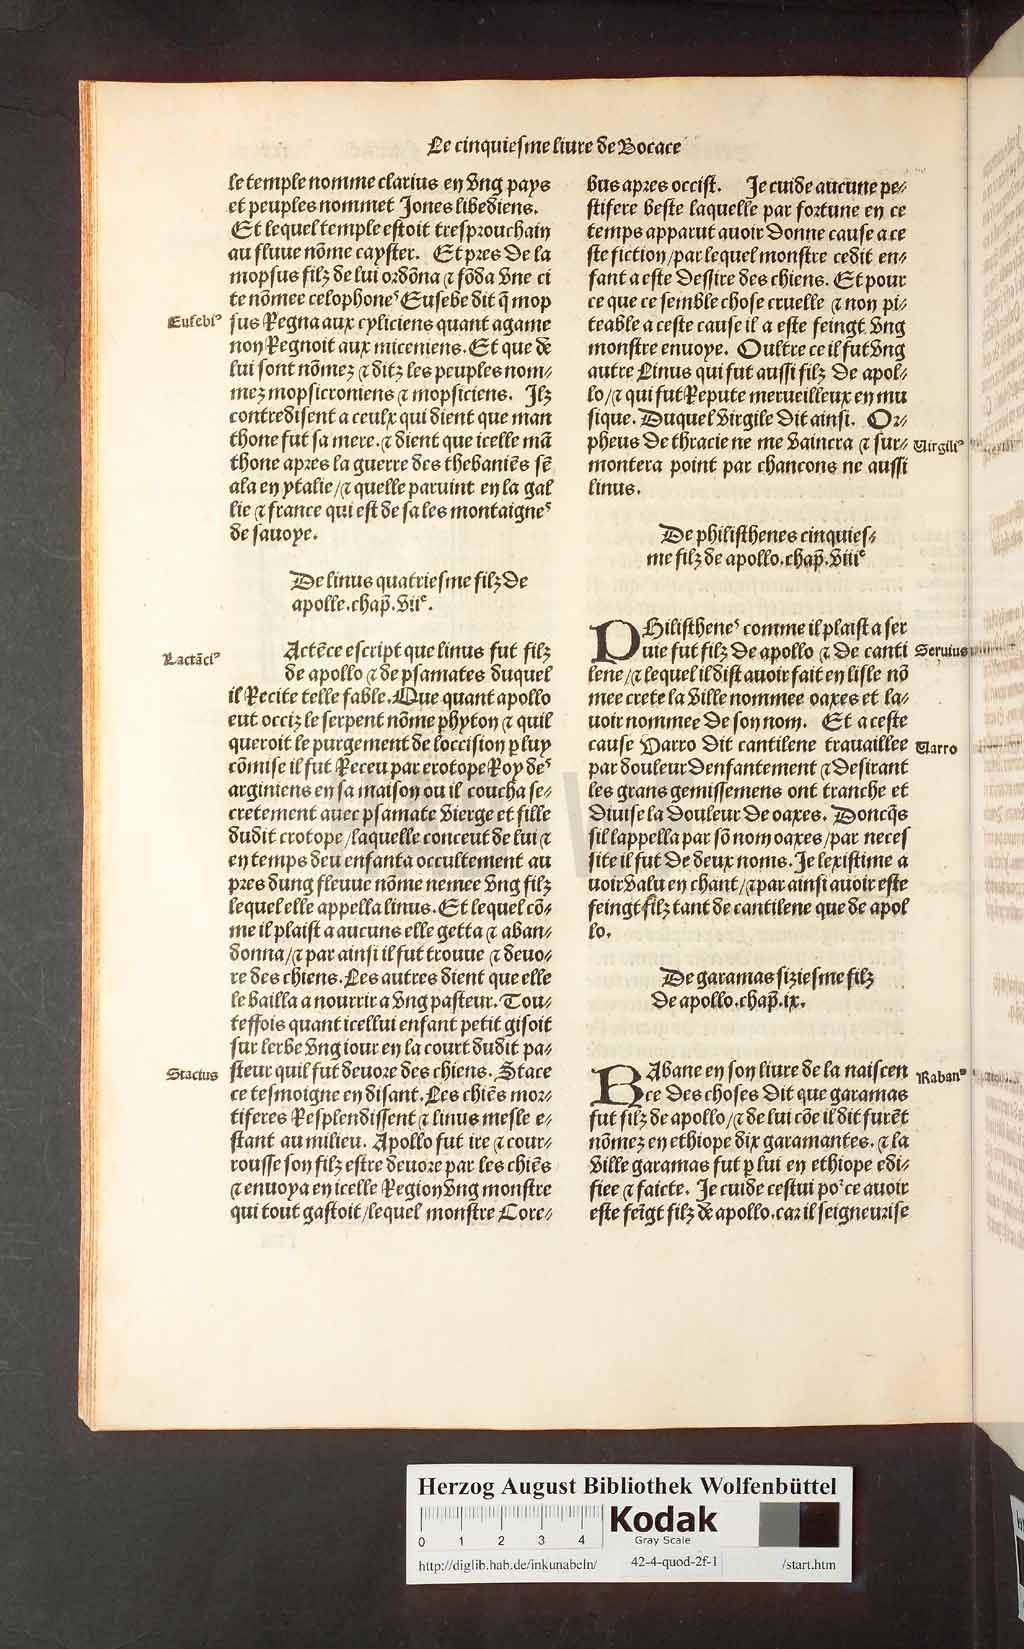 Le cinquiesme liure de Bocace
le temple nomme clarius en vng pays
et peuples nommet Jones libediens.
Et lequel temple estoit tresprouchain
au fluue nōme cayster. Et pres de la
mopsus filz de lui ordōna ⁊ fōda vne ci
te nōmee celophoneˢ Eusebe dit q̄ mop
Eusebiꝰ
sus Regna aux cyliciens quant agame
non Regnoit aux miceniens. Et que de
lui sont nōmez ⁊ ditz les peuples nom⸗
mez mopsicroniens ⁊ mopsiciens. Ilz
contredisent a ceulx qui dient que man
thone fut sa mere. ⁊ dient que icelle mā
thone apres la guerre des thebaniēs sē
ala en ytalie/⁊ quelle paruint en la gal
lie ⁊ france qui est de sa les montaigneˢ
de sauoye.
De linus quatriesme filz de
apolle. chap̄. viiᵉ.
Lactāciꝰ
Actēce escript que linus fut filz
de apollo ⁊ de psamates duquel
il Recite telle fable. Que quant apollo
eut occiz le serpent nōme phyton ⁊ quil
queroit le purgement de loccision ꝑ luy
cōmise il fut Receu par erotope Roy deˢ
arginiens en sa maison ou il coucha se⸗
cretement auec psamate vierge et fille
dudit crotope/laquelle conceut de lui ⁊
en temps deu enfanta occultement au
pres dung fleuue nōme nemee vng filz
lequel elle appella linus. Et lequel cō⸗
me il plaist a aucuns elle getta ⁊ aban⸗
donna/⁊ par ainsi il fut trouue ⁊ deuo⸗
re des chiens. Les autres dient que elle
le bailla a nourrir a vng pasteur. Tou⸗
teffois quant icellui enfant petit gisoit
sur lerbe vng iour en la court dudit pa⸗
Stacius
steur quil fut deuore des chiens. Stace
ce tesmoigne en disant. Les chiēs mor⸗
tiferes Resplendissent ⁊ linus mesle e⸗
stant au milieu. Apollo fut ire ⁊ cour⸗
rousse son filz estre deuore par les chiēs
⁊ enuoya en icelle Region vng monstre
qui tout gastoit/lequel monstre Core⸗
bus apres occist. Je cuide aucune pe⸗
stifere beste laquelle par fortune en ce
temps apparut auoir donne cause a ce
ste fiction/par lequel monstre cedit en⸗
fant a este dessire des chiens. Et pour
ce que ce semble chose cruelle ⁊ non pi⸗
teable a ceste cause il a este feingt vng
monstre enuoye. Oultre ce il fut vng
autre Linus qui fut aussi filz de apol⸗
lo/⁊ qui fut Repute merueilleux en mu
sique. Duquel virgile dit ainsi. Or⸗
pheus de thracie ne me vaincra ⁊ sur⸗
Virgiliꝰ
montera point par chancons ne aussi
linus.
De philisthenes cinquies⸗
me filz de apollo. chap̄. viiiᵉ
PHilistheneˢ comme il plaist a ser
uie fut filz de apollo ⁊ de canti
Seruius
lene/⁊ lequel il dist auoir fait en lisle nō
mee crete la ville nommee oaxes et la⸗
uoir nommee de son nom. Et a ceste
cause Varro dit cantilene trauaillee
Varro
par douleur denfantement ⁊ desirant
les grans gemissemens ont tranche et
diuise la douleur de oaxes. Doncq̄s
sil lappella par sō nom oaxes/par neces
site il fut de deux noms. Je lexistime a
uoir valu en chant/⁊ par ainsi auoir este
feingt filz tant de cantilene que de apol
lo.
De garamas siziesme filz
de apollo. chap̄. ix.
RAbane en son liure de la naiscen
Rabanꝰ
ce des choses dit que garamas
fut filz de apollo/⁊ de lui cōe il dit furēt
nōmez en ethiope dix garamantes. ⁊ la
ville garamas fut ꝑ lui en ethiope edi⸗
fiee ⁊ faicte. Je cuide cestui poˀ ce auoir
este feīgt filz de apollo. car il seigneurise
Herzog August Bibliothek Wolfenbüttel
0 1 2 3 4
Kodak
Gray Scale
http://diglib.hab.de/inkunabeln/ 42-4-quod-2f-1 /start.htm